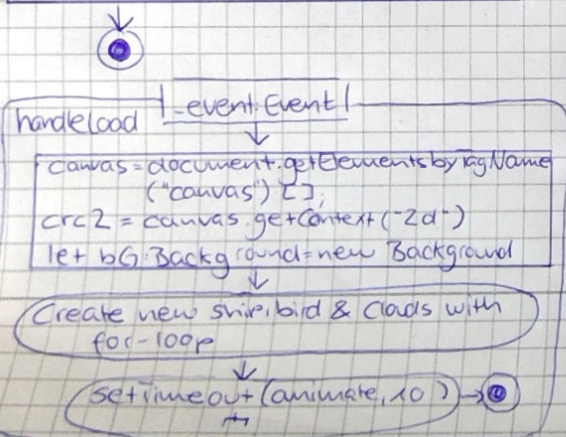 _event:Event
handleLoad
canvas = document.getElementsbyTagName
("canvas") [];
crc2 = canvas.getContext("2d")
let bG:Background = new Background
Create new ship, bird & Clouds with
for-loop
setTimeout(animate, 10)